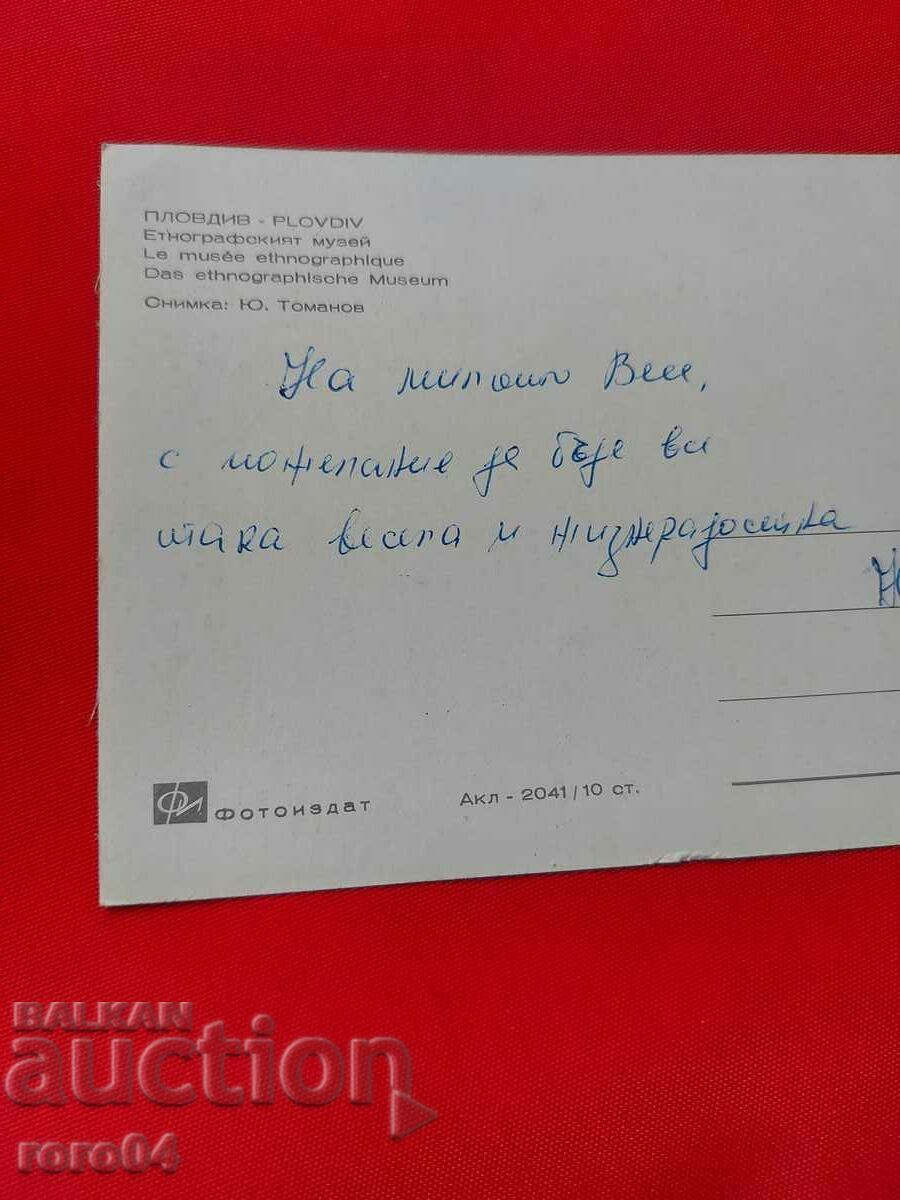 ПЛОВДИВ - PLOVDIV
Етнографският музей
Le musée ethnographique
Das ethnographische Museum
Снимка: Ю. Томанов
На милото
с пожелание да бъде
така весела и жизнерадостна
ФИ ФОТОИЗДАТ
Акл - 2041/10 ст.
BALKAN
auction
roro04